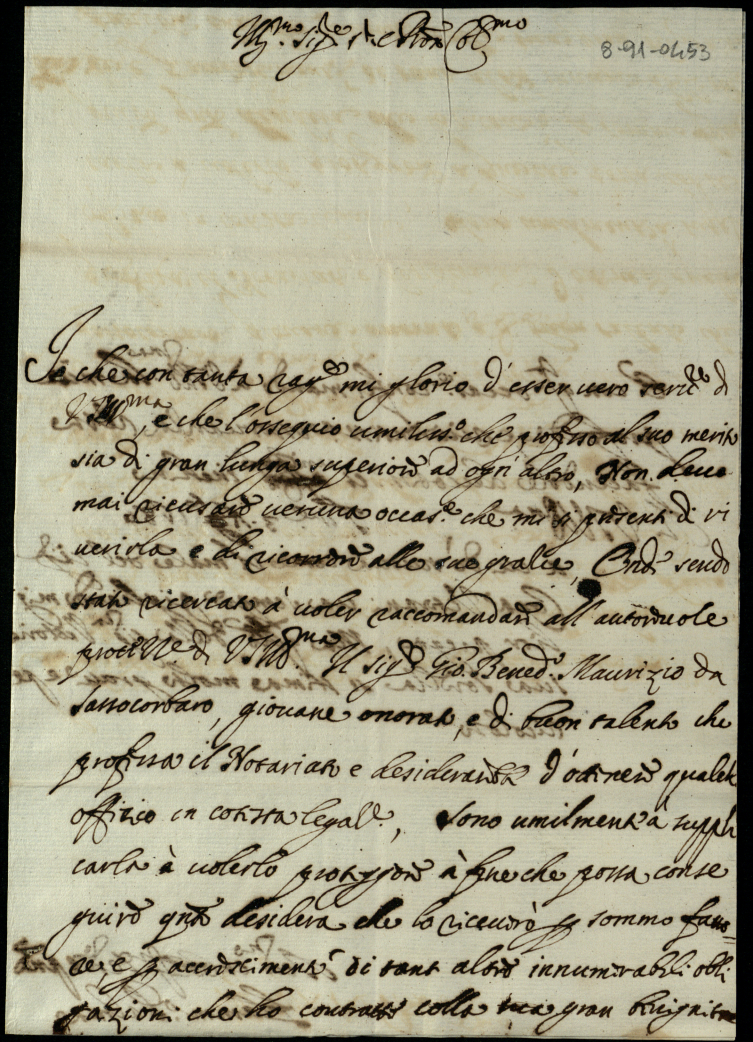 Ill.mo Sig.re Sig.re e Pron Col.mo
8-91-0453
Io che con tanta rag.e mi glorio d'esser vero serv.re di
V.S. Ill.ma, e che l'ossequio umiliss.o che professo al suo merito
sia di gran lunga superiore ad ogn'altro, Non devo
mai ricusare veruna occas.e che mi si presenti di ri
verirla e di ricorrere alle sue grazie, Onde sendo
stato ricercato à voler raccomandare all'autorevole
protez.ne di V.S. Ill.ma Il Sig.re Gio. Bened.o Maurizio da
Sassocorbaro, giovane onorato, e di buon talento che
professa il Notariato e desiderarebbe d'ottenere qualche
offizio in cotesta legaz.e, Sono umilmente à suppli
carla à volerlo proteggere à fine che possa conse
guire q.nto desidera che lo riceverò per sommo favo=
re, e per accrescimento di tant'altre innumerabili obli
gazioni che ho contratte colla sua gran benignità